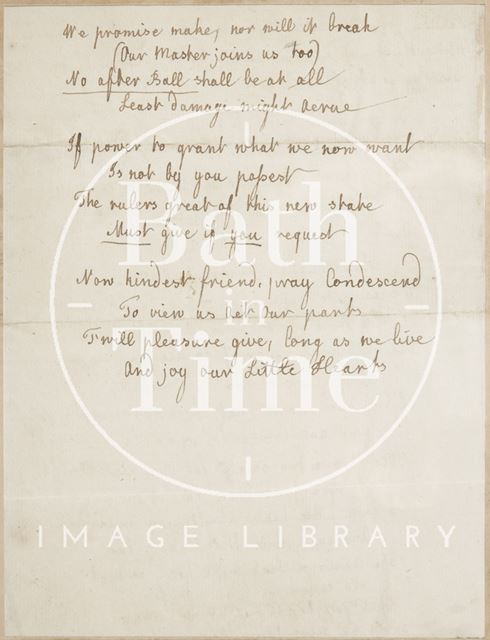 We promise make, nor will it break
(Our Master joins us too)
No after Ball shall be at all
Least damage might acrue
If power to grant what we now want
Is not by you possest
The rulers great of this new state
Must give if you request
Now kindest friend, pray Condescend
To view us act our parts
T'will pleasure give, long as we live
And joy our Little Hearts
Bath
in
Time
IMAGE LIBRARY